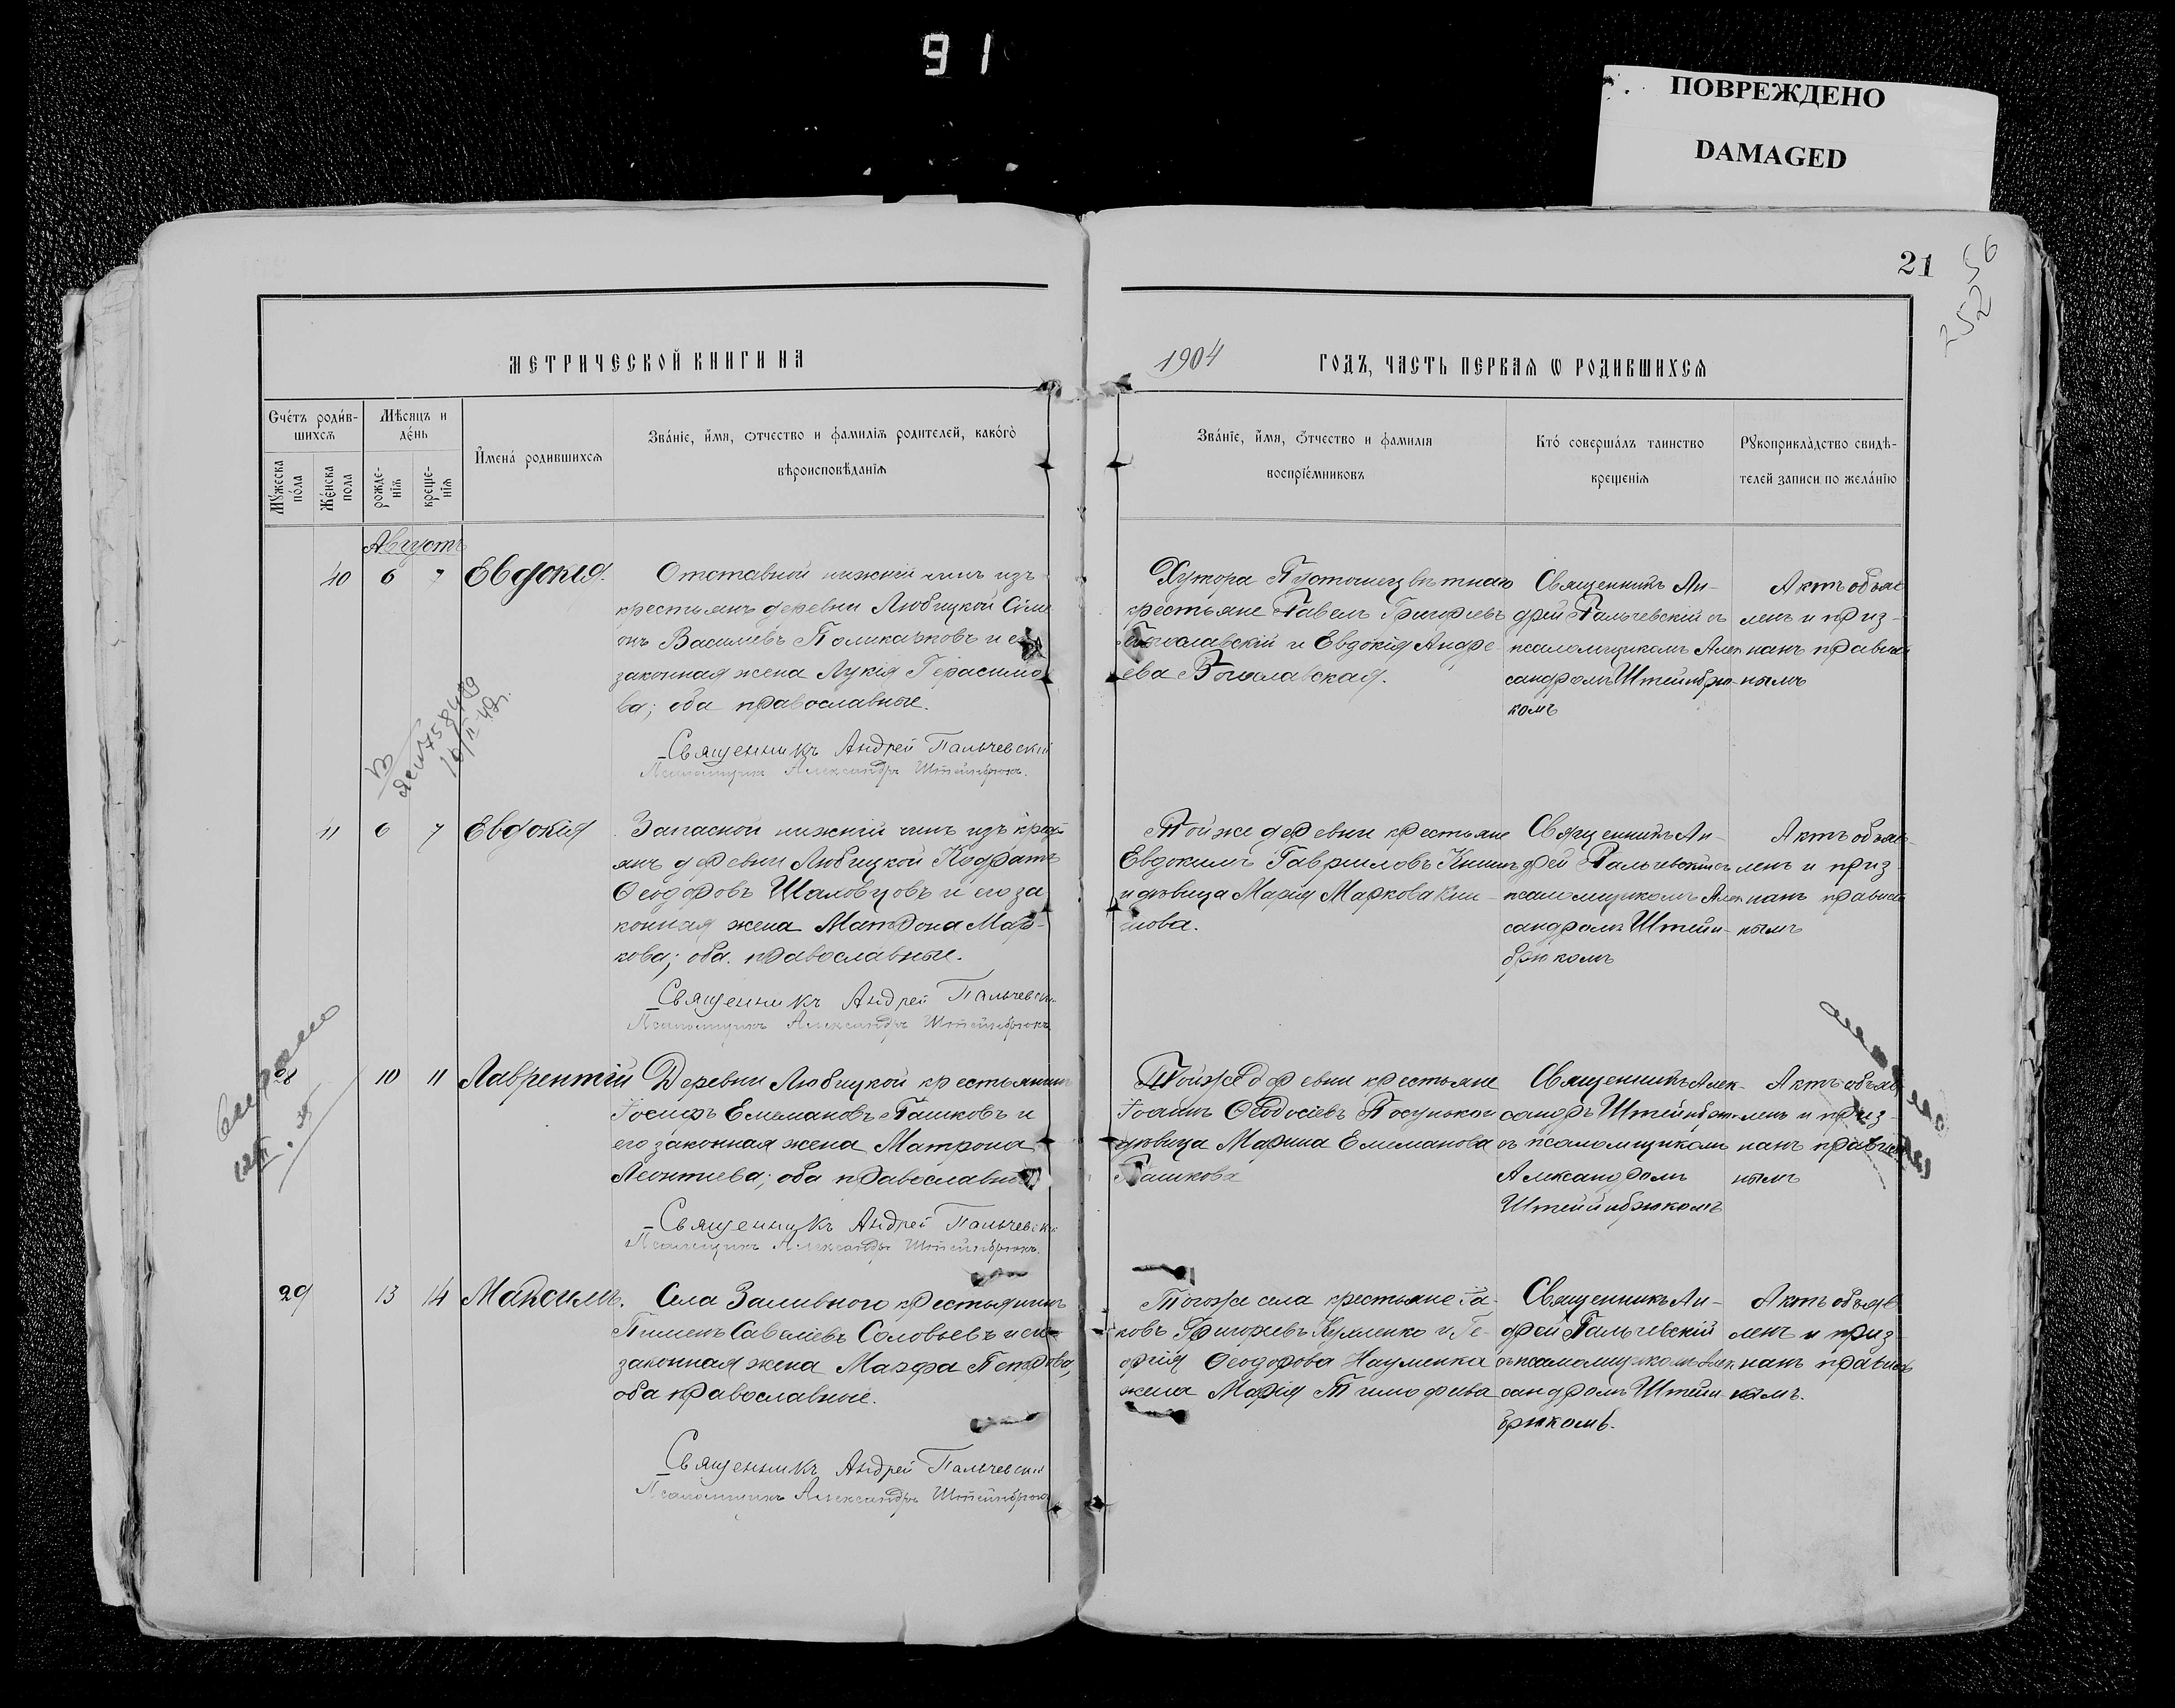 91
ПОВРЕЖДЕНО
DAMAGED
21
56
252
МЕТРИЧЕСКОЙ КНИГИ НА
1904
ГОДЪ, ЧАСТЬ ПЕРВАЯ Ѡ РОДИВШИХСЯ
Счéтъ роди́в-
шихсѧ
Мѣсяцъ и
дéнь
Мꙋ́жеска
пóла
Жéнска
пола
рожде-
нїѧ
креще-
нїѧ
И҆мена́ родившихсѧ
Зва́нїе, и҆́мя, ѻтчество и фамилїѧ родителей, како́гѡ
вѣроисповѣданїѧ
Зва́нїе, и҆́мя, ѻ҆́тчество и фамилїя
воспрїе́мниковъ
Кто́ соверша́лъ таинство
крещенїѧ
Рꙋкоприкла́дство свидѣ-
телей записи по жела́нїю
Августъ
40 6 7 Евдокія.
Отставной нижній чинъ изъ
крестьянъ деревни Любицкой Симе
онъ Васильевъ Поликарповъ и его
законная жена Лукія Герасимо
ва; оба православные.
Священникъ Андрей Пальчевскій
Псаломщикъ Александръ Штейнбрюкъ.
Хутора
крестьяне Павелъ Григорьевъ
Богославскій и Евдокія Андре
ева Богославская.
Священникъ Ан-
дрей Пальчевскій съ
псаломщикомъ Алек
сандромъ Штейнбрю-
комъ
Актъ объяв
ленъ и приз-
нанъ правиль
нымъ
41 6 7 Евдокія
Запасной нижній чинъ изъ крест
янъ деревни Любицкой Кодратъ
Ѳеодоровъ Шаловцовъ и его за
конная жена Матрона Мар-
кова; оба православные.
Священникъ Андрей Пальчевскі
Псаломщикъ Александръ Штейнбрюкъ
Той же деревни крестьяне
Евдокимъ Гавриловъ
и дѣвица Марія Маркова
Священникъ Ан-
дрей Пальчевскій съ
псаломщикомъ Алек
сандромъ Штейн-
брюкомъ
Актъ объяв-
ленъ и приз
нанъ правиль
нымъ
28 10 11 Лаврентій
Деревни Любицкой крестьянинъ
Іосифъ Емельяновъ Пашковъ и
его законная жена Матрона
Леонтьева; оба православные
Священникъ Андрей Пальчевскі
Псаломщикъ Александръ Штейнбрюкъ.
Той же деревни крестьяне
Іоаннъ Ѳеодосіевъ
дѣвица Марина Емельянова
Пашкова
Священникъ Алек-
сандръ
съ псаломщикомъ
Александромъ
Штейнбрюкомъ
Актъ объяв
ленъ и приз-
нанъ правиль
нымъ
29 13 14 Максимъ.
Села Заливного крестьянинъ
Пименъ Савеліевъ Соловьевъ и его
законная жена Марфа Петрова,
оба православные.
Священникъ Андрей Пальчевскій
Псаломщикъ Александръ Штейнбрюкъ
Тогоже села крестьяне Іа-
ковъ Григорьевъ Куленко и Ге-
оргія Ѳеодорова Науменка
жена Марія Тимофеева
Священникъ Ан-
дрей Пальчевскій
съ псаломщикомъ Алек
сандромъ Штейн
брюкомъ.
Актъ объяв
ленъ и приз
нанъ правиль
нымъ.